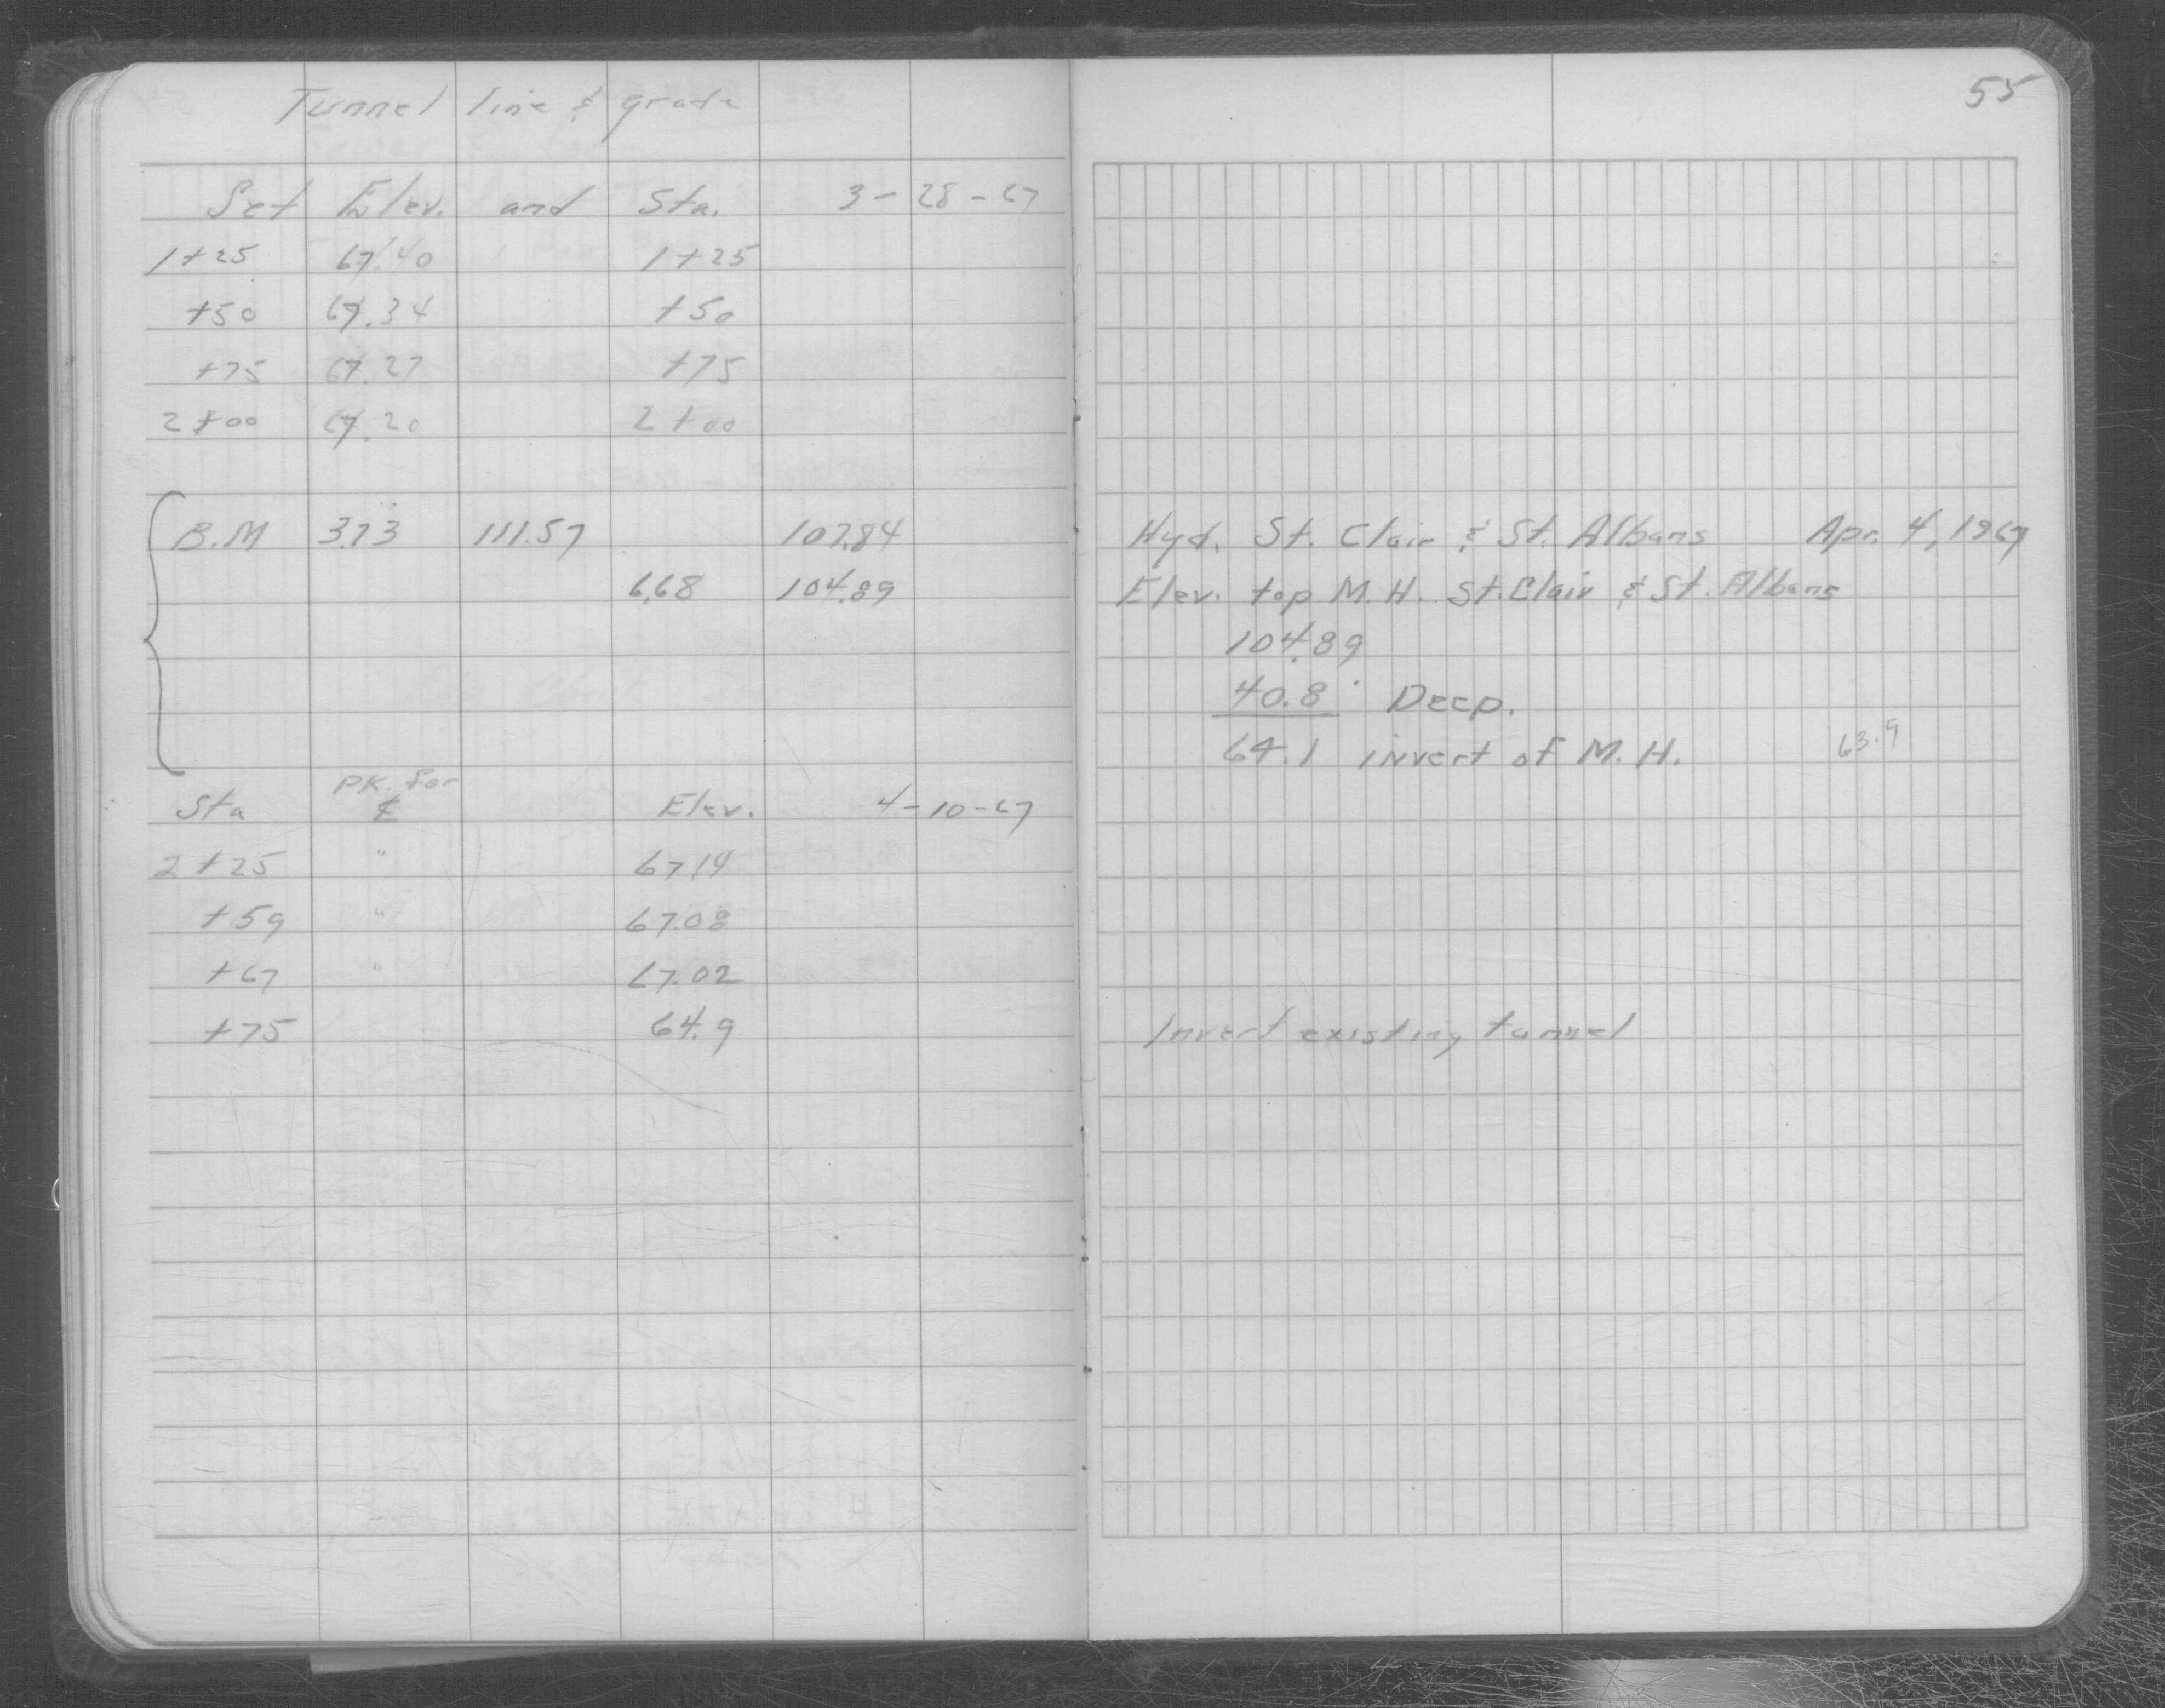 Tunnel line & grade
Set Elev. and Sta. 3-28-67
1+25 67.40 1+25
+50 67.34 +50
+75 67.27 +75
2+00 67.20 2+00
B.M 3.73 111.57 107.84
6.68 104.89
Sta PK for ℄ Elev. 4-10-67
2+25 " 67.14
+59 " 67.08
+67 " 67.02
+75 64.9
55
Hyd. St. Clair & St. Albans Apr. 4, 1967
Elev. top M.H. St. Clair & St. Albans
104.89
40.8 Deep.
64.1 invert of M.H. 63.9
Invert existing tunnel